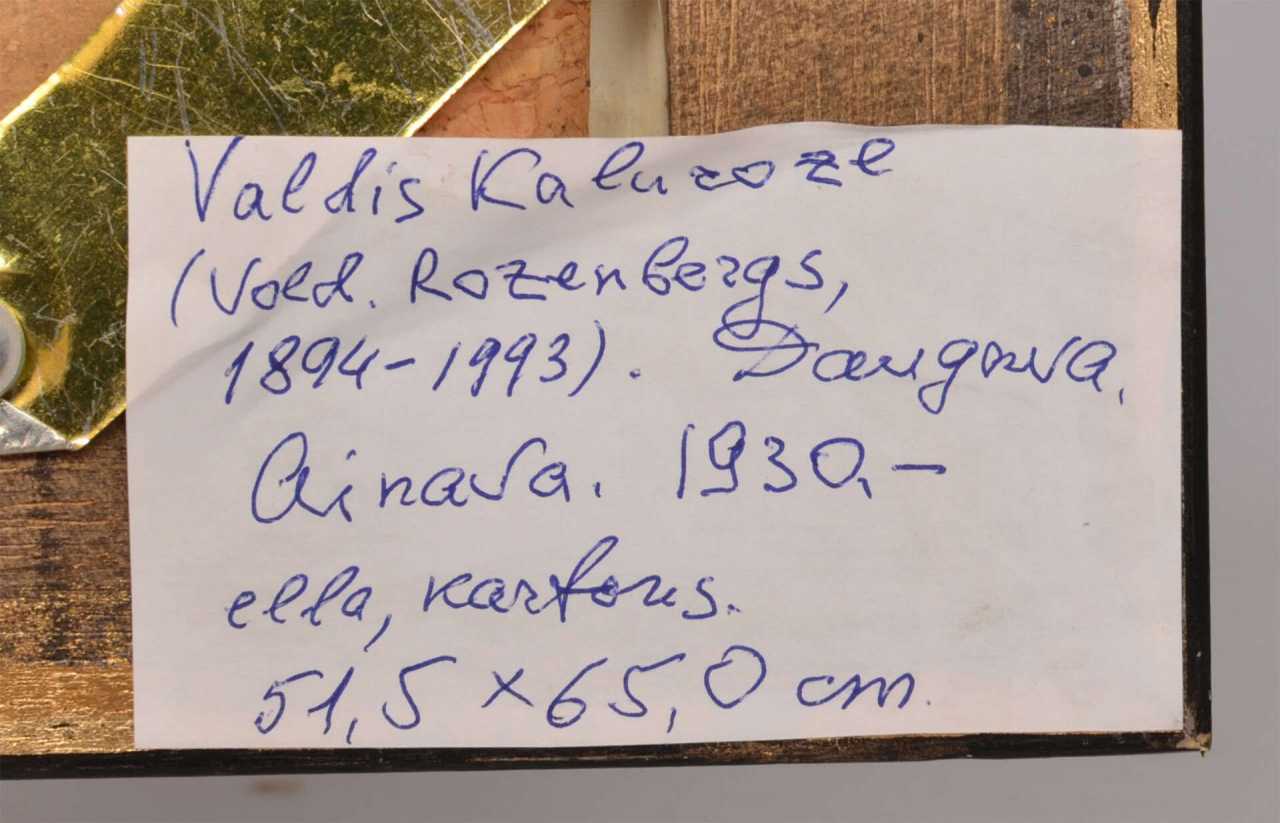 Valdis Kalnroze
(Vold. Rozenbergs,
1894-1993). Daugava.
Ainava. 1930.-
ella, kartons.
51,5 x 65,0 cm.